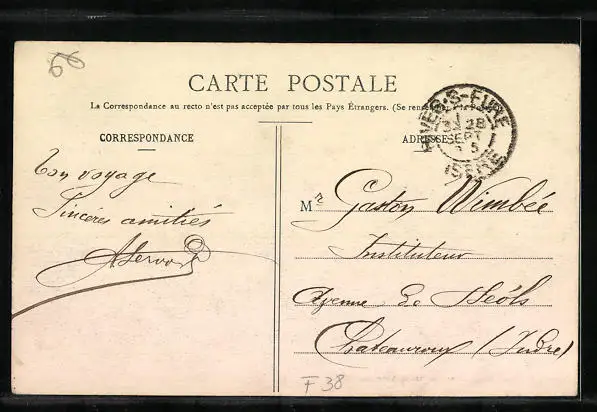 56
CARTE POSTALE
La Correspondance au recto n'est pas acceptée par tous les Pays Étrangers. (Se
CORRESPONDANCE
ADRESSE
RIVES-S-FURE
28
SEPT
5
ISÈRE
Bon voyage
Sincères amitiés
Mr Gaston Wimbée
Instituteur
Avenue de Déols
Chateauroux (Indre)
F 38